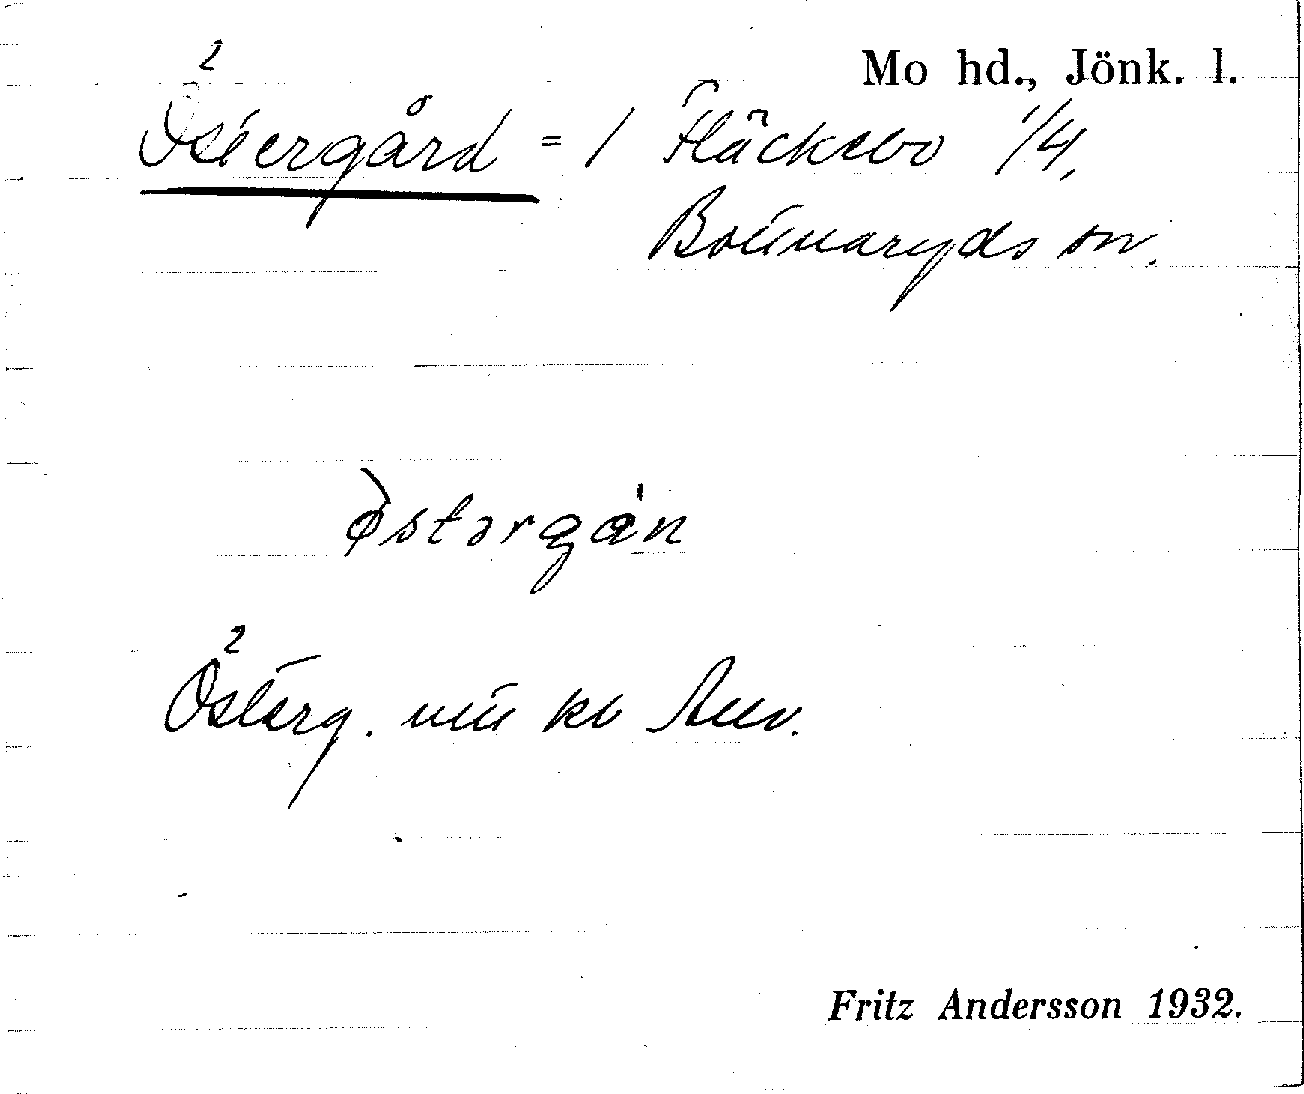 Mo hd., Jönk. l.
Östergård = 1 Fläckebo 1/4,
Bottnaryds sn.
østərgán
Österg. utt kb
Fritz Andersson 1932.